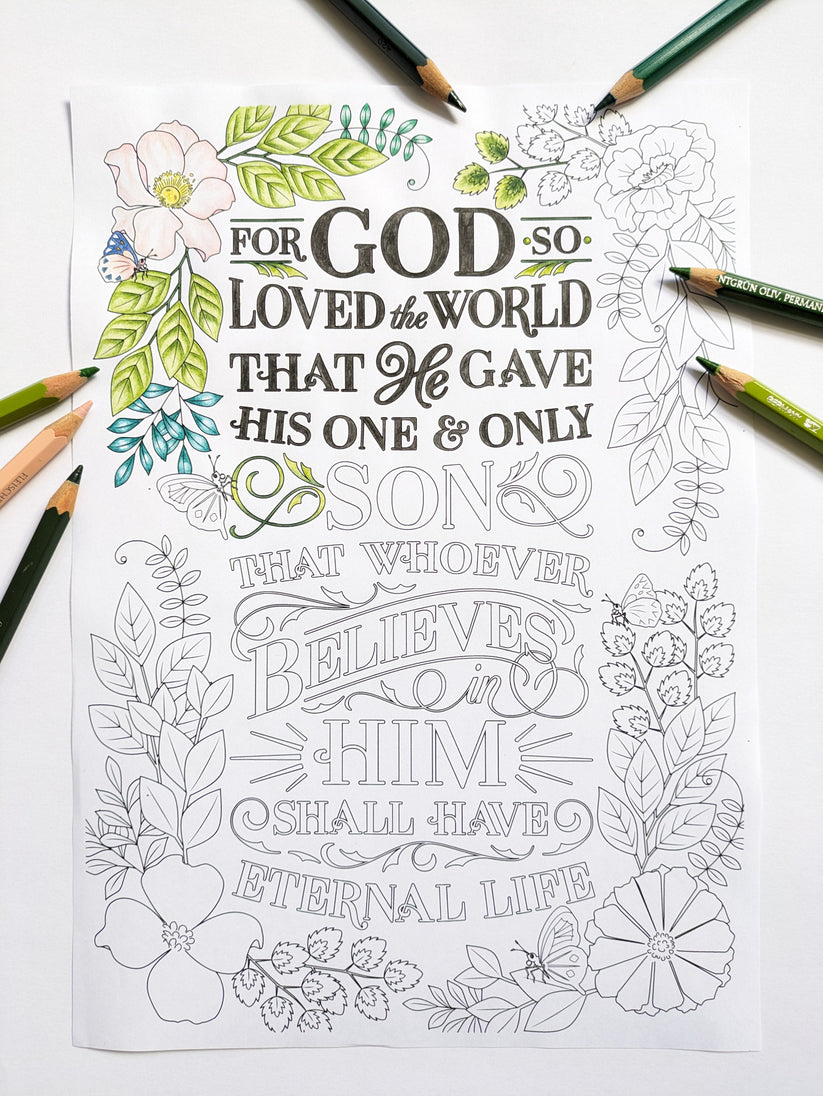 FOR GOD SO
LOVED the WORLD
THAT He GAVE
HIS ONE & ONLY
SON
THAT WHOEVER
BELIEVES
in
HIM
SHALL HAVE
ETERNAL LIFE
OLIV, PERMAN